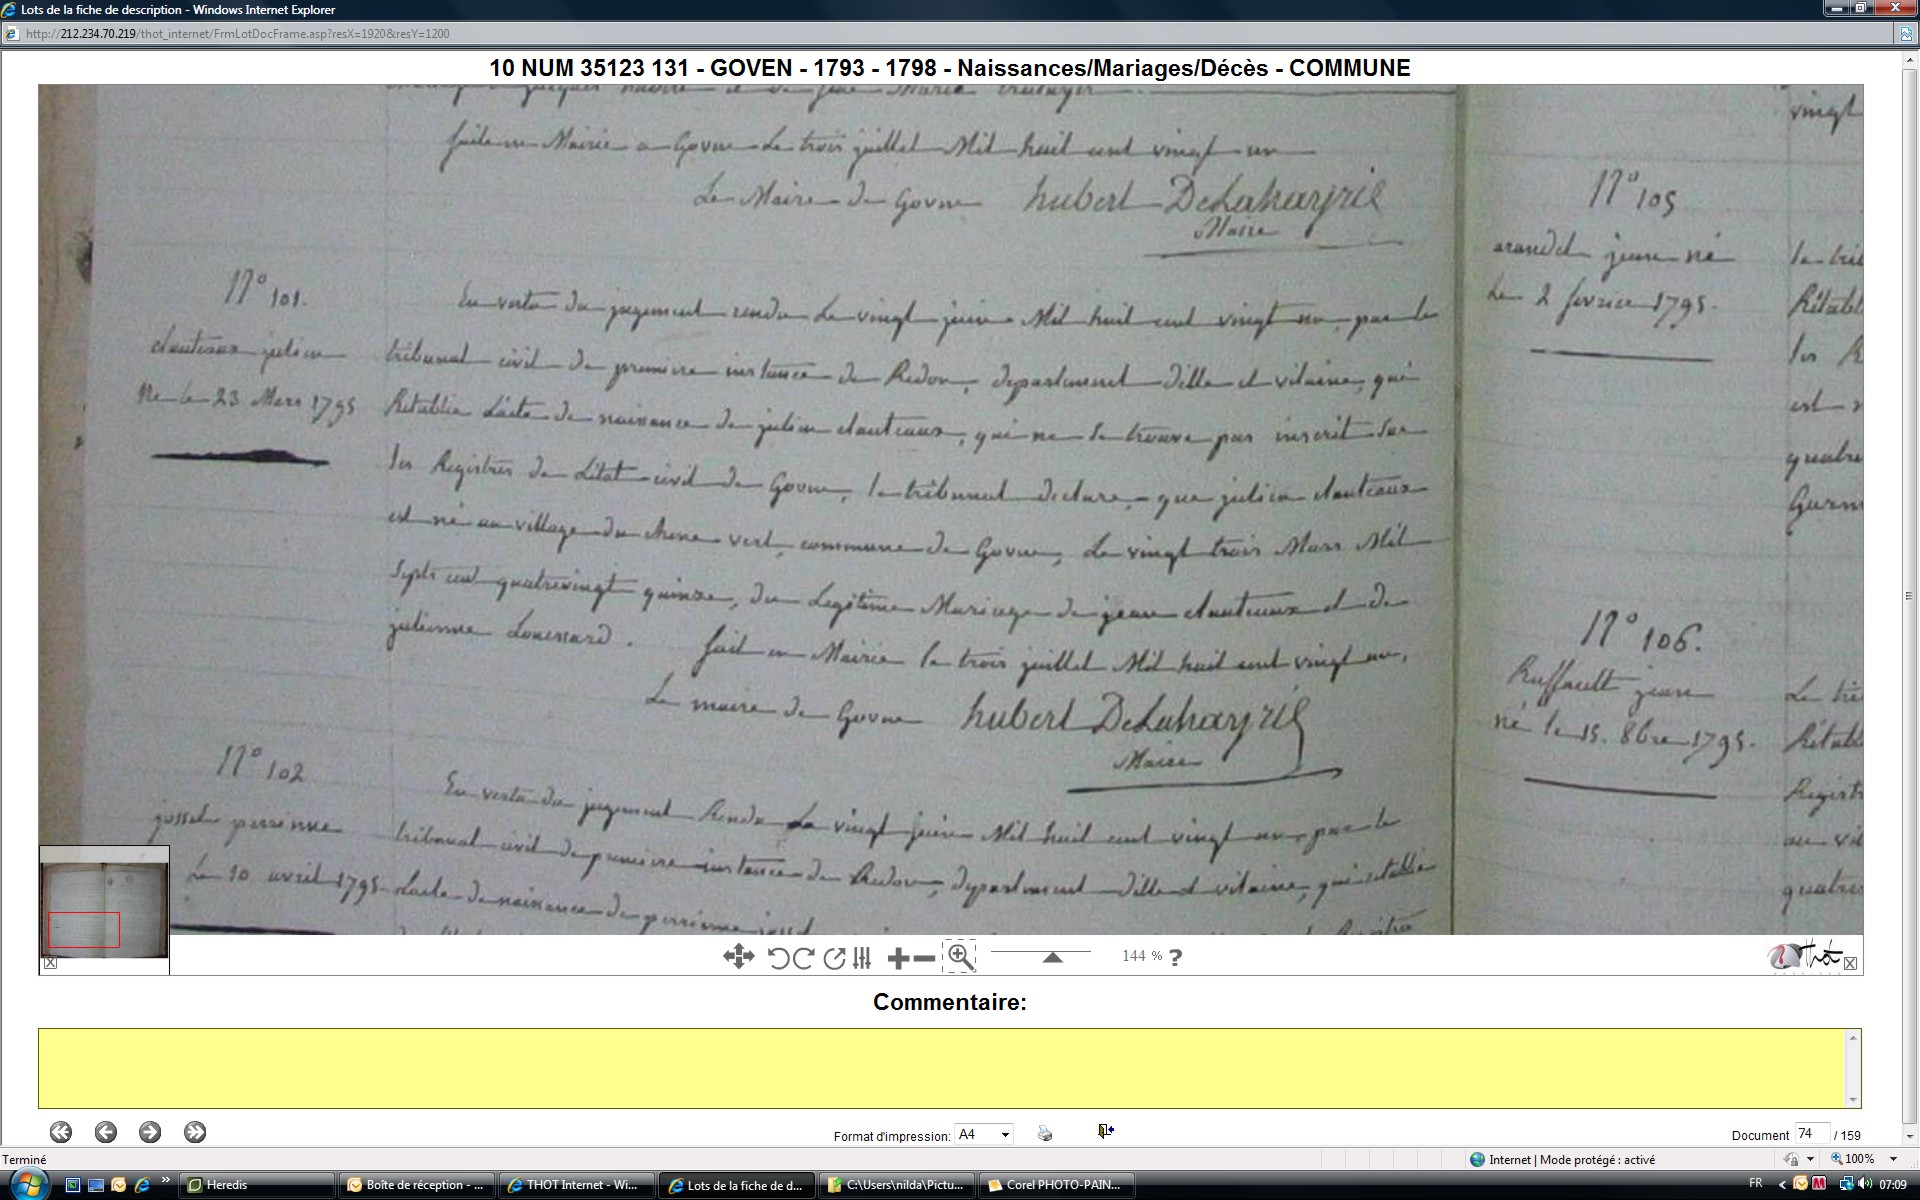 Lots de la fiche de description - Windows Internet Explorer
http://212.234.70.219/thot_internet/FrmLotDocFrame.asp?resX=1920&resY=1200
10 NUM 35123 131 - GOVEN - 1793 - 1798 - Naissances/Mariages/Décès - COMMUNE
faite en Mairie a Goven Le trois juillet Mil huit cent vingt un
Le Maire de Goven hubert DeLaharjrie
Maire
N° 101.
dauteaux julien
Né le 23 Mars 1795
En vertu du jugement rendu Le vingt juin Mil huit cent vingt un, par le
tribunal civil de première instance de Redon, département dille et vilaine, qui
Rétablie L'acte de naissance de julien dauteaux, qui ne se trouve pas inscrit sur
les Registres de L'état civil de Goven, le tribunal declare que julien dauteaux
est né au village du chene vert, commune de Goven, Le vingt trois Mars Mil
septs cent quatrevingt quinze, du Legitime Mariage de jean dauteaux et de
julienne Louessard.
fait en Mairie le trois juillet Mil huit cent vingt un,
Le maire de Goven hubert DeLaharjrie
Maire
N° 102
josset perrinne
Le 10 avril 1795.
En vertu du jugement Rendu Le vingt juin Mil huit cent vingt un, par le
tribunal civil de première instance de Redon, département dille et vilaine, qui rétablie
Lacte de naissance de perrinne josset
Registres
vingt
N° 105
jean né
Le 2 fevrier 1795.
Rétabl
les R
est
quatre
N° 106.
Ruffault jean
né le 15. 8bre 1795.
Le tri
Rétabl
Registr
au vil
quatre
144 % ?
Thot
Commentaire:
Format d'impression: A4
Document 74 / 159
Terminé
Internet | Mode protégé : activé
100%
Heredis
Boîte de réception - ...
THOT Internet - Wi...
Lots de la fiche de d...
C:\Users\nilda\Pictu...
Corel PHOTO-PAIN...
FR
07:09